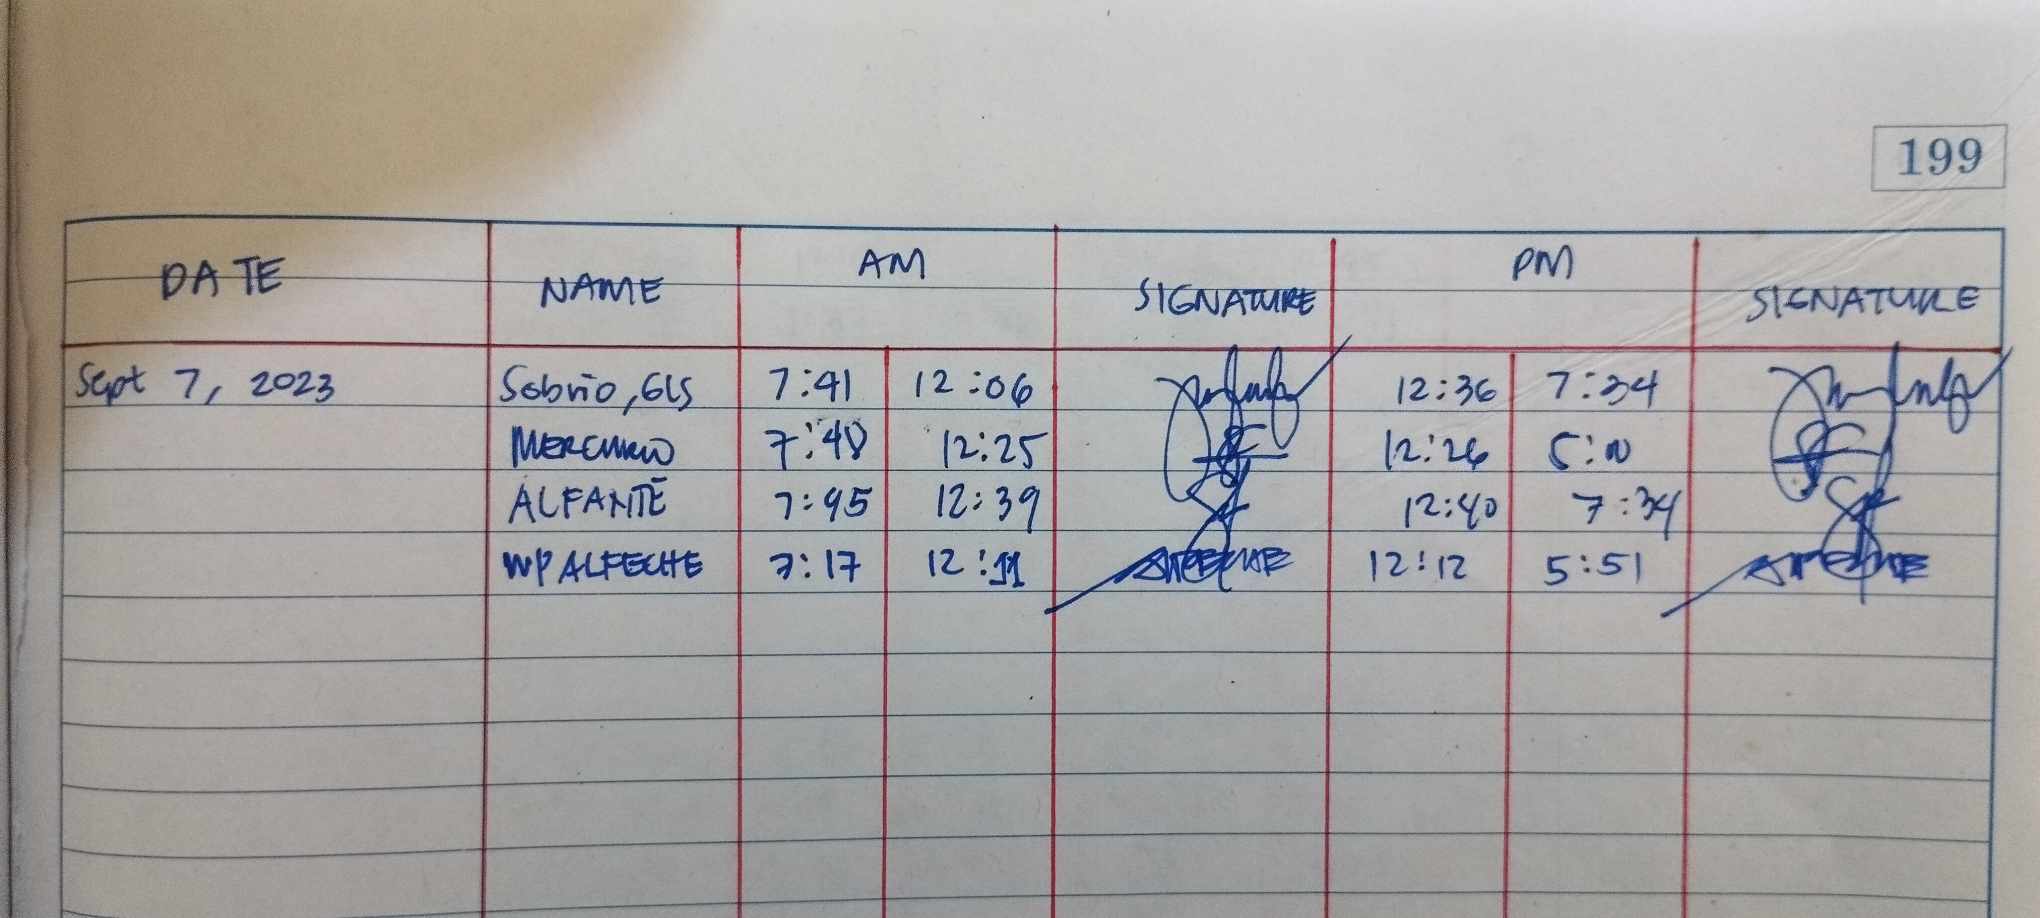 199
DATE NAME AM SIGNATURE PM SIGNATURE
Sept 7, 2023 Sobrio, GLS 7:41 12:06 12:36 7:34
MERCURIO 7:48 12:25 12:26 5:10
ALFANTE 7:45 12:39 12:40 7:34
WP ALFECHE 7:17 12:11 ALFECHE 12:12 5:51 ALFECHE